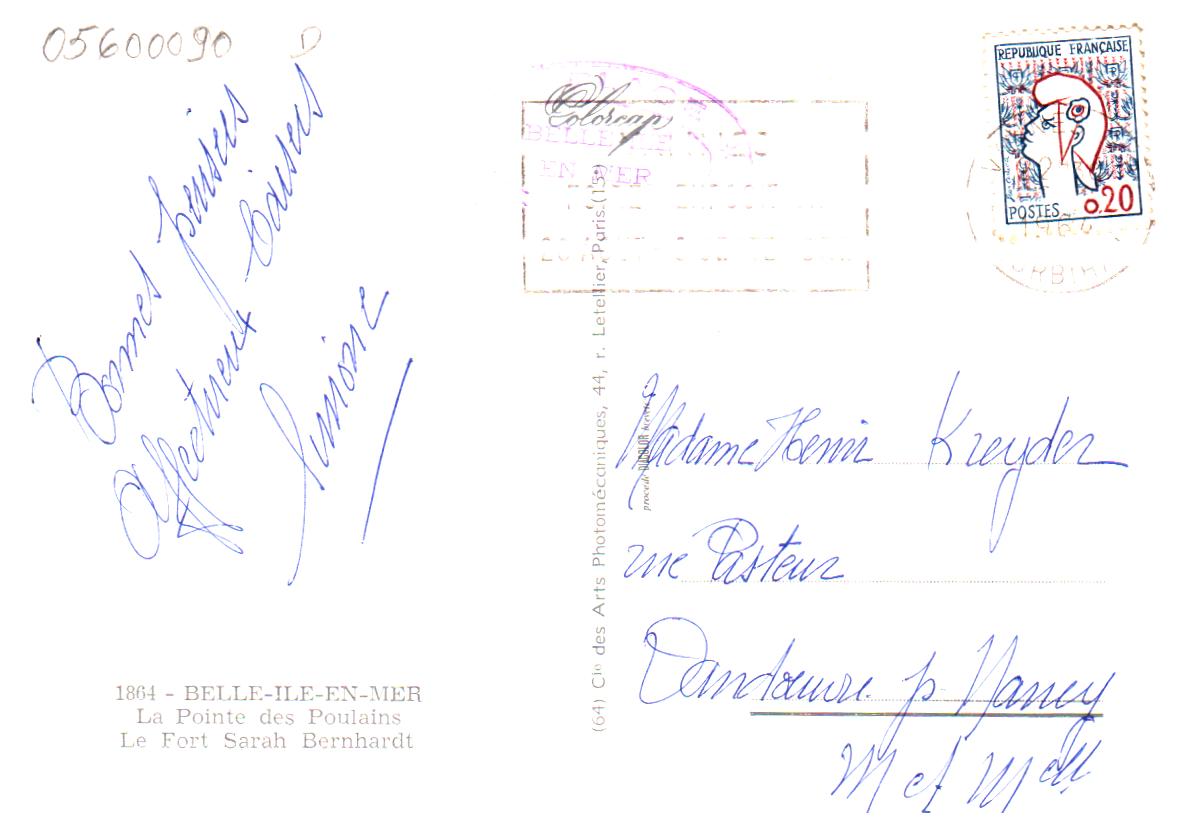 05600090 D
Bonnes pensées
Affectueux baisers
1864 - BELLE-ILE-EN-MER
La Pointe des Poulains
Le Fort Sarah Bernhardt
Colorcap
BELLE-ILE
EN MER
(64) Cie des Arts Photomécaniques, 44, r. Letellier, Paris (15e)
procédé DUCOLOR
REPUBLIQUE FRANÇAISE
POSTES 0,20
1964
Madame Henri Kreyder
rue Pasteur
Vandœuvre p. Nancy
M et Mlle